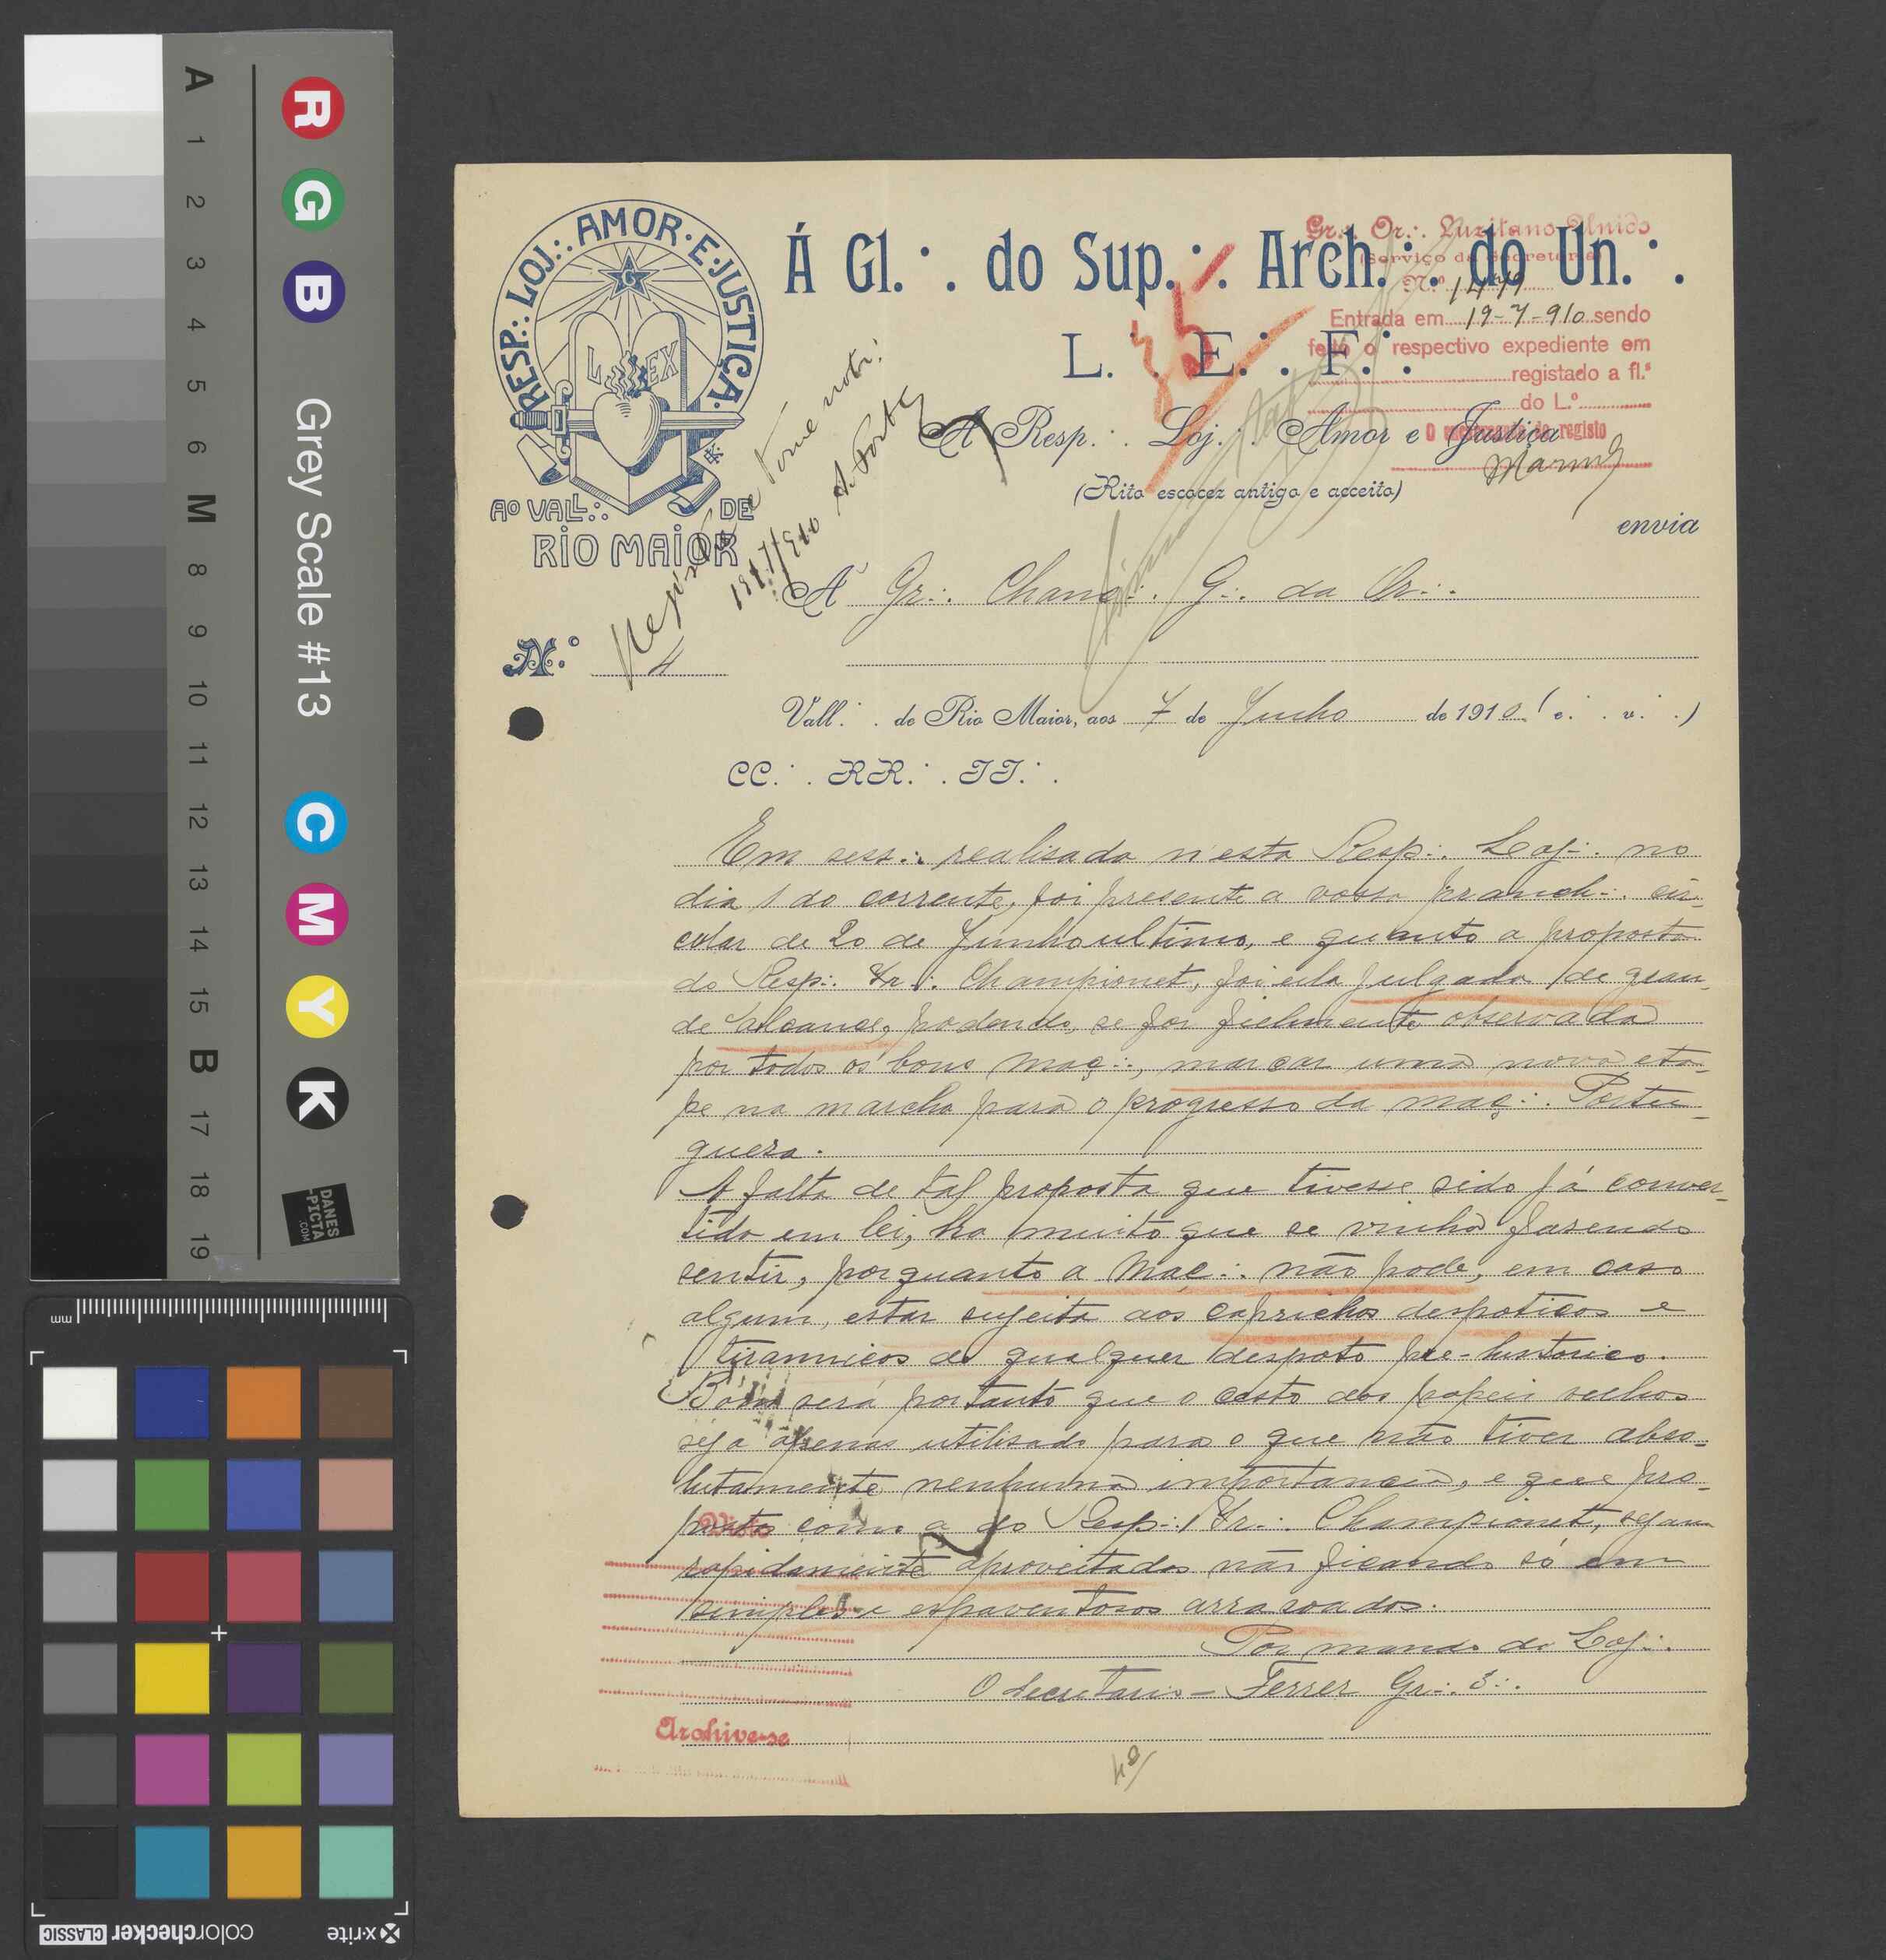 A 1 2 3 4 5 6 M 8 9 10 11 12 13 14 15 B 17 18 19
R G B
Grey Scale #13
C M Y K
DANES
-PICTA
.COM
mm
colorchecker CLASSIC
x-rite
RESP.: LOJ.: AMOR · E · JUSTIÇA.
G
LEX
AO VALL.: DE
RIO MAIOR
Á Gl.∴ do Sup.∴ Arch.∴ do Un.∴
L.∴ E.∴ F.∴
Gr.∴ Or.∴ Luzitano Unido
(Serviço da Secretaria)
N.º 1479
Entrada em 19-7-910 sendo
feito o respectivo expediente em
registado a fl.ˢ
do L.º
O encarregado do registo
A Resp.∴ Loj.∴ Amor e Justiça
(Rito escocez antigo e acceito)
envia
e tome nota:
19/7/910 A. Forte
Á Gr∴ Chanc∴ G∴ da Or∴
N.º 4
Vall∴ de Rio Maior, aos 7 de Julho de 1910 (e.∴ v.∴)
CC.∴ RR.∴ II.∴
Em sess∴ realisada n'esta Resp∴ Loj∴ no
dia 1 do corrente, foi presente a vossa pranch∴ cir-
cular de 20 de Junho ultimo, e quanto a proposta
do Resp∴ Ir∴ Championet, foi ella julgada de gran-
de alcance, podendo, se for fielmente observada
por todos os bons maç∴, marcar uma nova eta-
pe na marcha para o progresso da maç∴ Portu-
gueza.
A falta de tal proposta que tivesse sido já conver-
tida em lei, ha muito que se vinha fasendo
sentir, porquanto a Maç∴ não pode, em caso
algum, estar sujeita aos caprichos despoticos e
tirannicos de qualquer despota pre-historico.
Bom será portanto que o cesto dos papeis velhos
seja apenas utilisado para o que não tiver abso-
lutamente nenhuma importancia, e que pro-
postas como a do Resp∴ Ir∴ Championet, sejam
rapidamente aproveitadas não ficando só em
simples e espaventosos arrasoados.
Por mando da Loj∴
O Secretario - Ferrer Gr∴ 3∴
Visto
Archive-se